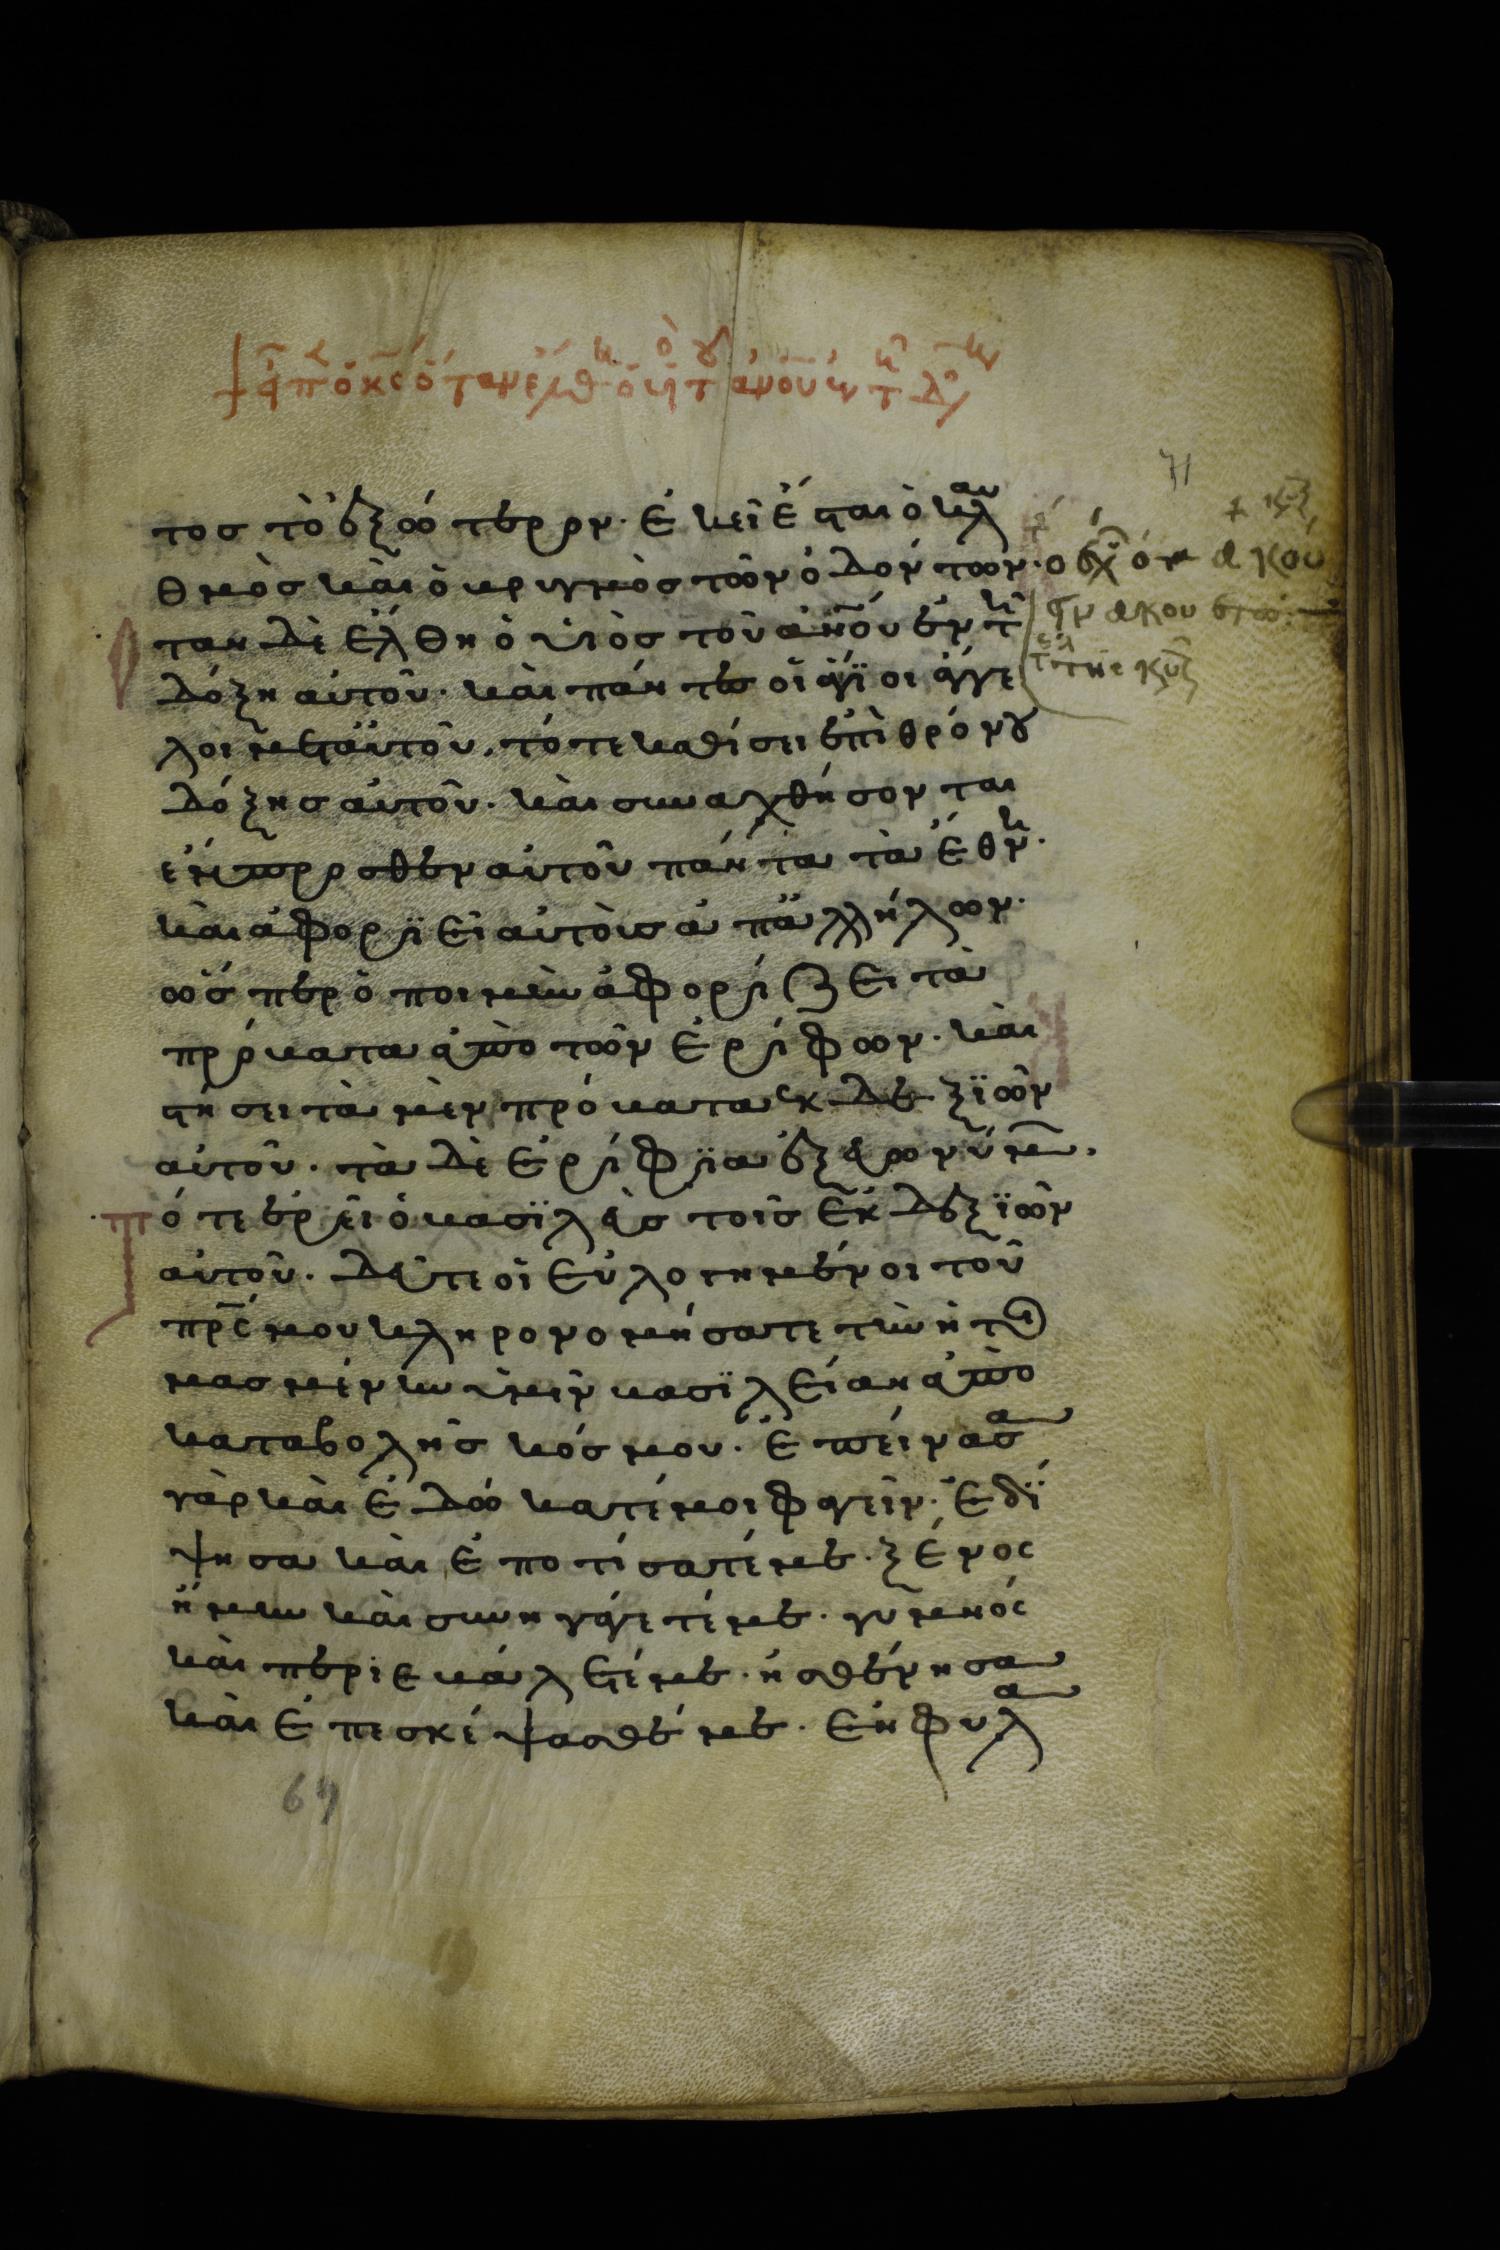 εἶπ ὁ κς ὅταν ἔλθη ὁ υἱ τ ανου ἐν τῆ δό
71
τος τὸ ἐξώτερον· ἐκεῖ ἔσται ὁ κλαυ
θμὸς καὶ ὁ βριγμὸς τῶν ὀδόντων· ὁ ἔχων ὦτα ἀκού
ειν ἀκουέτω·
τέλ τῆς κυ
ταν δὲ ἔλθη ὁ υἱὸς τοῦ ανου ἐν τῆ
δόξη αὐτοῦ· καὶ πάντες οἱ ἅγϊοι ἄγγε
λοι μετ αὐτοῦ, τότε καθίσει ἐπὶ θρόνου
δόξης αὐτοῦ· καὶ συναχθήσονται
ἔμπροσθεν αὐτοῦ πάντα τὰ ἔθνη·
καὶ ἀφοριεῖ αὐτοὺς ἀπ ἀλλήλων·
ὥσπερ ὁ ποιμὴν ἀφορίζει τὰ
πρόβατα ἀπὸ τῶν ἐρίφων· καὶ
στήσει τὰ μὲν πρόβατα ἐκ δεξϊῶν
αὐτοῦ· τὰ δὲ ἐρίφϊα ἐξ εὐωνύμων·
Τότε ἐρεῖ ὁ βασϊλεὺς τοῖς ἐκ δεξϊῶν
αὐτοῦ· δεῦτε οἱ εὐλογημένοι τοῦ
πρς μου κληρονομήσατε τὴν ἡτοι
μασμένην ὑμῖν βασϊλείαν ἀπὸ
καταβολῆς κόσμου· ἐπείνασα
γὰρ καὶ ἐδώκατέ μοι φαγεῖν· ἐδί
ψησα καὶ ἐποτίσατέ με· ξένος
ἤμην καὶ συνηγάγετέ με· γυμνός
καὶ περιεβάλετέ με· ἠσθένησα
καὶ ἐπεσκέψασθέ με· ἐν φυλα
69